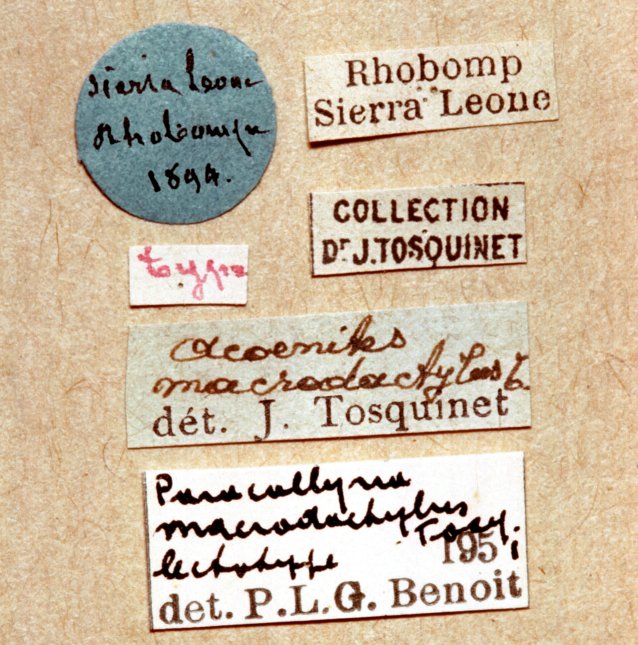 Sierra Leone
Rhobomp
1894.
Rhobomp
Sierra Leone
COLLECTION
Dr J. TOSQUINET
type
Acoenites
macrodactylus T.
dét. J. Tosquinet
Paracollyria
macrodactylus
Tosq.
lectotype 195
det. P.L.G. Benoit